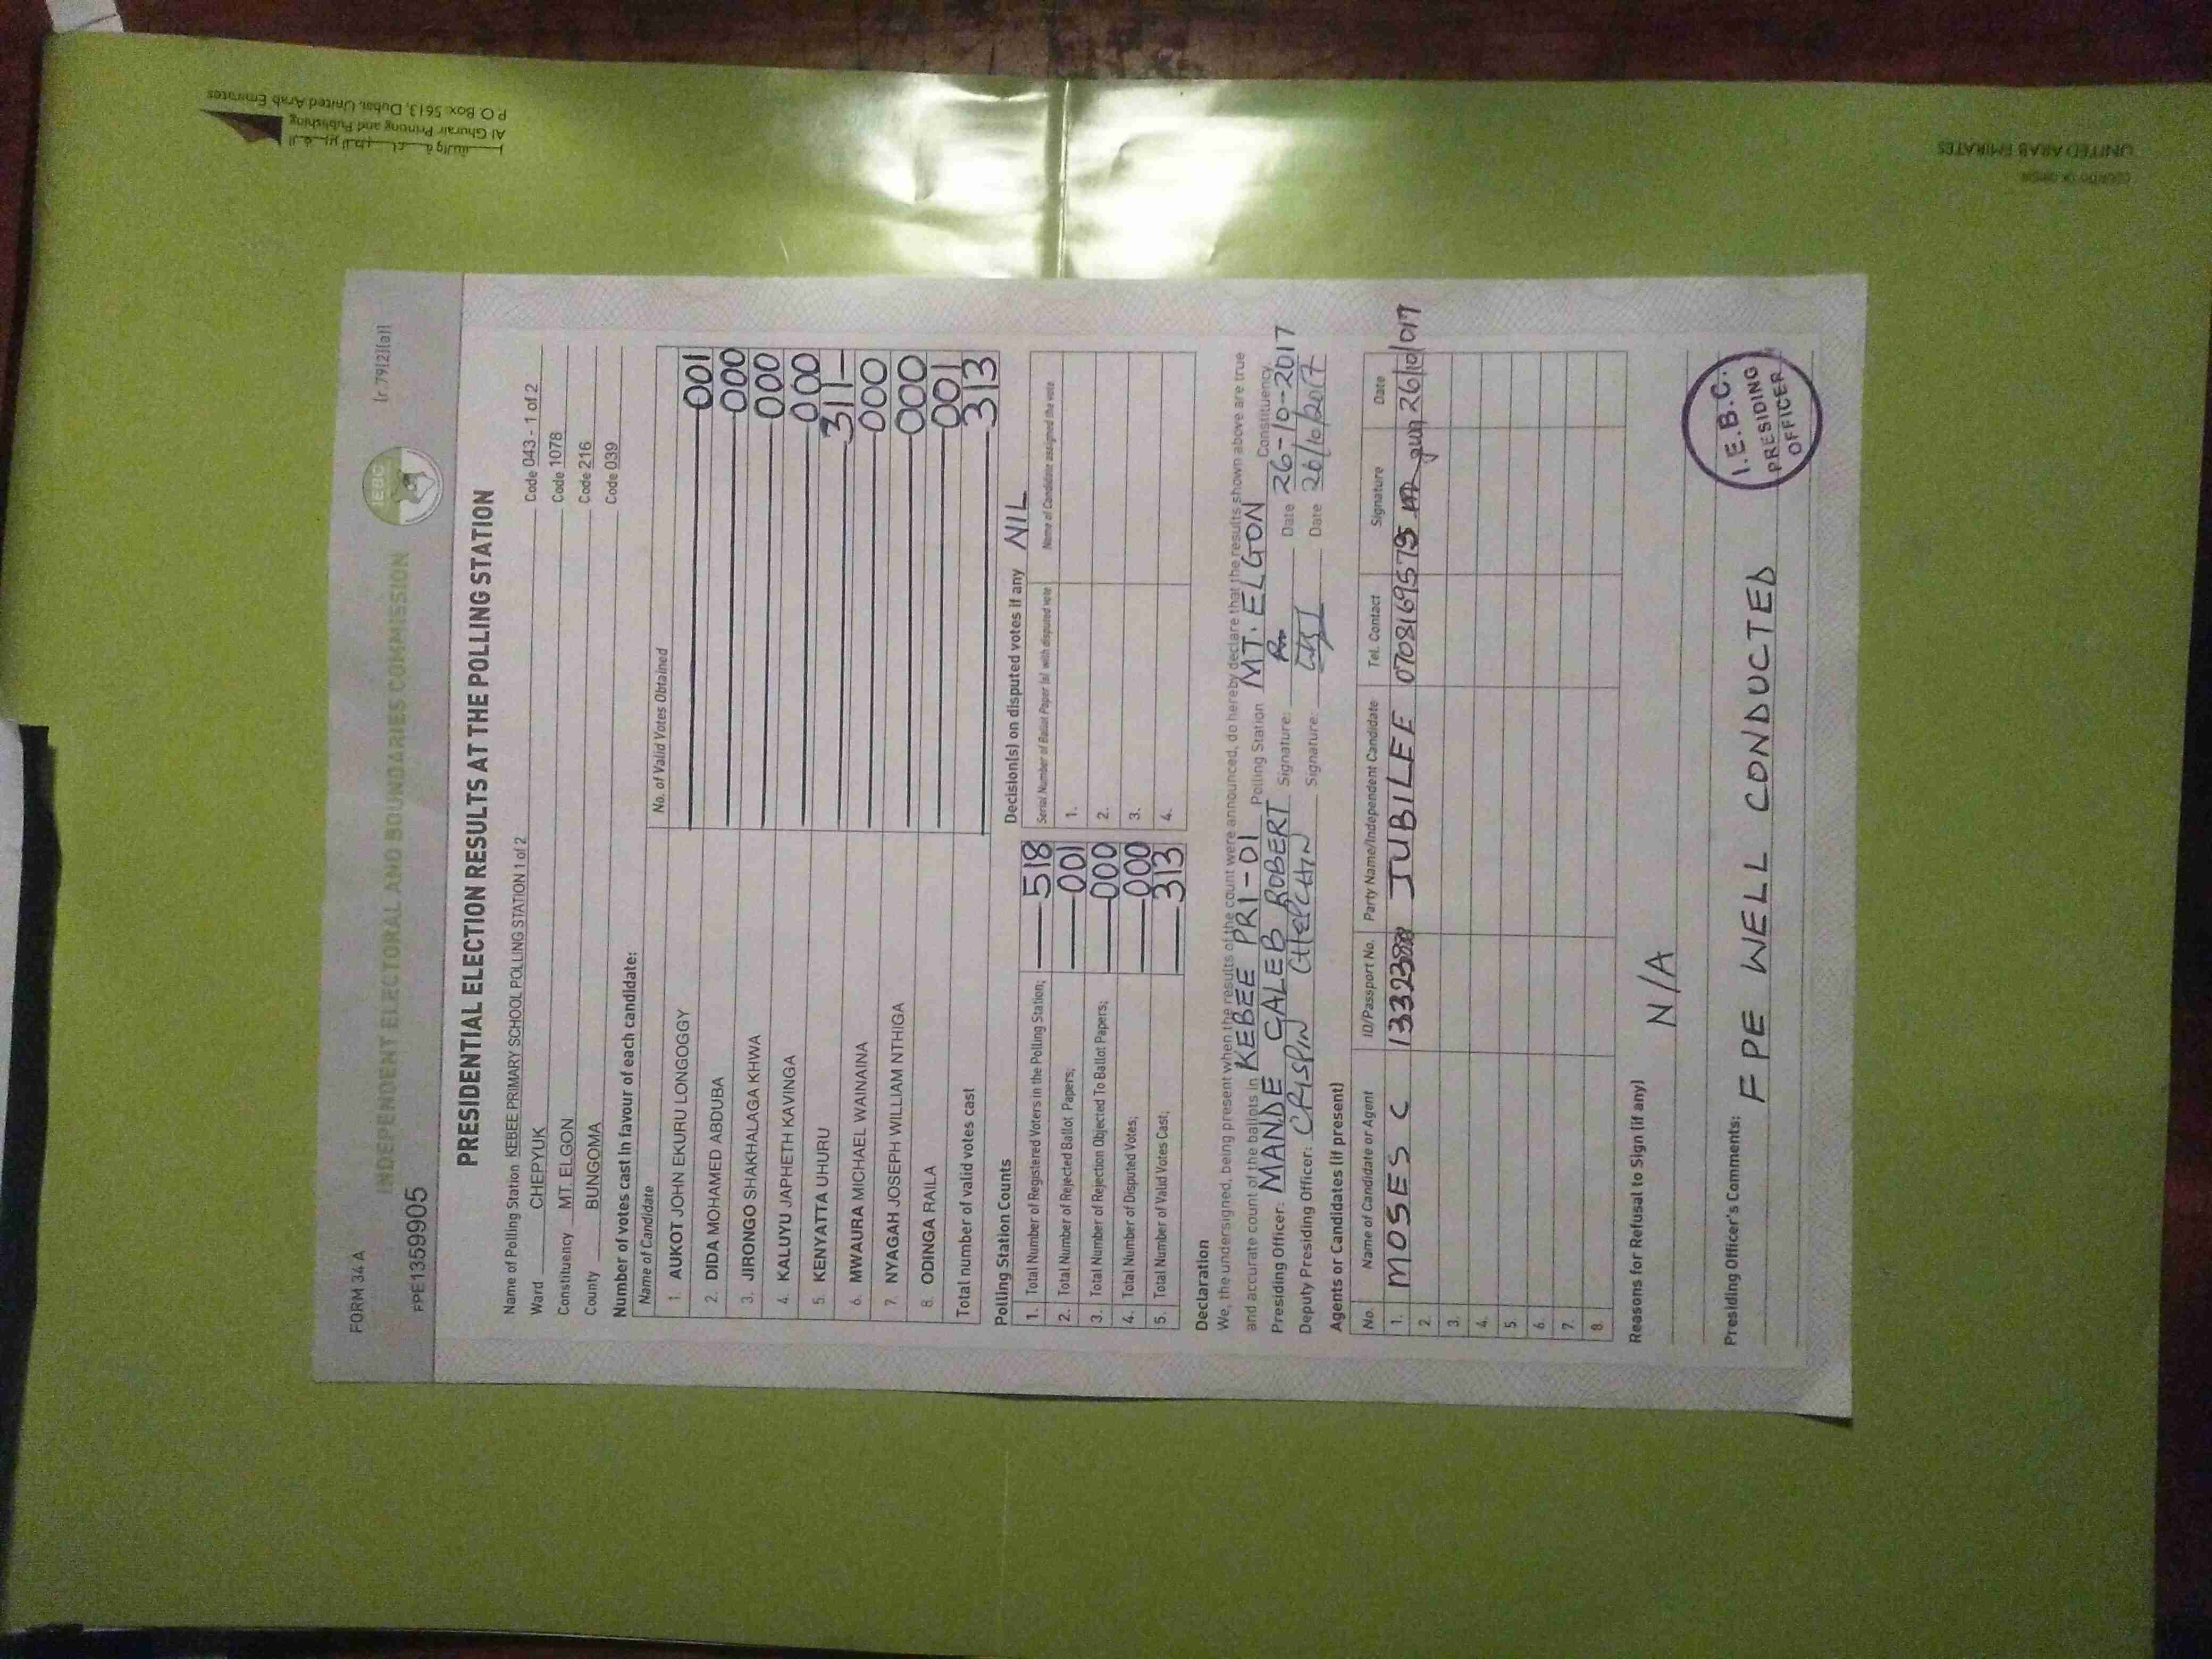 FORM 34 A
[r.79[2](a)]
INDEPENDENT ELECTORAL AND BOUNDARIES COMMISSION
IEBC
FPE1359905
PRESIDENTIAL ELECTION RESULTS AT THE POLLING STATION
Name of Polling Station KEBEE PRIMARY SCHOOL POLLING STATION 1 of 2 Code 043 - 1 of 2
Ward CHEPYUK Code 1078
Constituency MT. ELGON Code 216
County BUNGOMA Code 039
Number of votes cast in favour of each candidate:
Name of Candidate No. of Valid Votes Obtained
1. AUKOT JOHN EKURU LONGOGGY 001
2. DIDA MOHAMED ABDUBA 000
3. JIRONGO SHAKHALAGA KHWA 000
4. KALUYU JAPHETH KAVINGA 000
5. KENYATTA UHURU 311-
6. MWAURA MICHAEL WAINAINA 000
7. NYAGAH JOSEPH WILLIAM NTHIGA 000
8. ODINGA RAILA 001
Total number of valid votes cast 313
Polling Station Counts
1. Total Number of Registered Voters in the Polling Station; 518
2. Total Number of Rejected Ballot Papers; 001
3. Total Number of Rejection Objected To Ballot Papers; 000
4. Total Number of Disputed Votes; 000
5. Total Number of Valid Votes Cast; 313
Decision(s) on disputed votes if any NIL
Serial Number of Ballot Paper (s) with disputed vote Name of Candidate assigned the vote
1.
2.
3.
4.
Declaration
We, the undersigned, being present when the results of the count were announced, do hereby declare that the results shown above are true
and accurate count of the ballots in KEBEE PRI - 01 Polling Station MT. ELGON Constituency.
Presiding Officer: MANDE CALEB ROBERT Signature: Date 26-10-2017
Deputy Presiding Officer: CRISPIN CHEPCHIN Signature: Date 26/10/2017
Agents or Candidates (if present)
No. Name of Candidate or Agent ID/Passport No. Party Name/Independent Candidate Tel. Contact Signature Date
1. MOSES C JUBILEE 26/10/017
2.
3.
4.
5.
6.
7.
8.
Reasons for Refusal to Sign (if any)
N/A
Presiding Officer's Comments:
FPE WELL CONDUCTED
I.E.B.C.
PRESIDING
OFFICER
Al Ghurair Printing and Publishing
P. O. Box: 5613, Dubai, United Arab Emirates
COUNTRY OF ORIGIN
UNITED ARAB EMIRATES